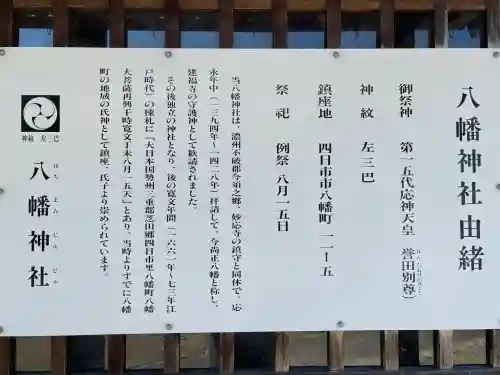 八幡神社由緒
御祭神　第一五代応神天皇　誉田別尊）
神紋　左三巴
鎮座地　四日市市八幡町一二ー五
祭祀　例祭　八月一五日
当八幡神社は、濃州不破郡今須之郷、妙応寺の鎮守と同体で、応
永年中（一三九四年〜一四二八年）拝請して、今尚正八幡と称し、
建福寺の守護神として歓請されました。
その後独立の神社となり、後の寛文年間（一六六一年〜七三年江
戸時代）の棟札に『大日本国勢州三重郡芝田郷四日市里八幡町八幡
大菩薩再興于時寛文丁未八月一五天』とあり、当時よりすでに八幡
町の地域の氏神として鎮座、氏子より崇められています。
神紋　左三巴
八幡神社
はちまんじんじゃ